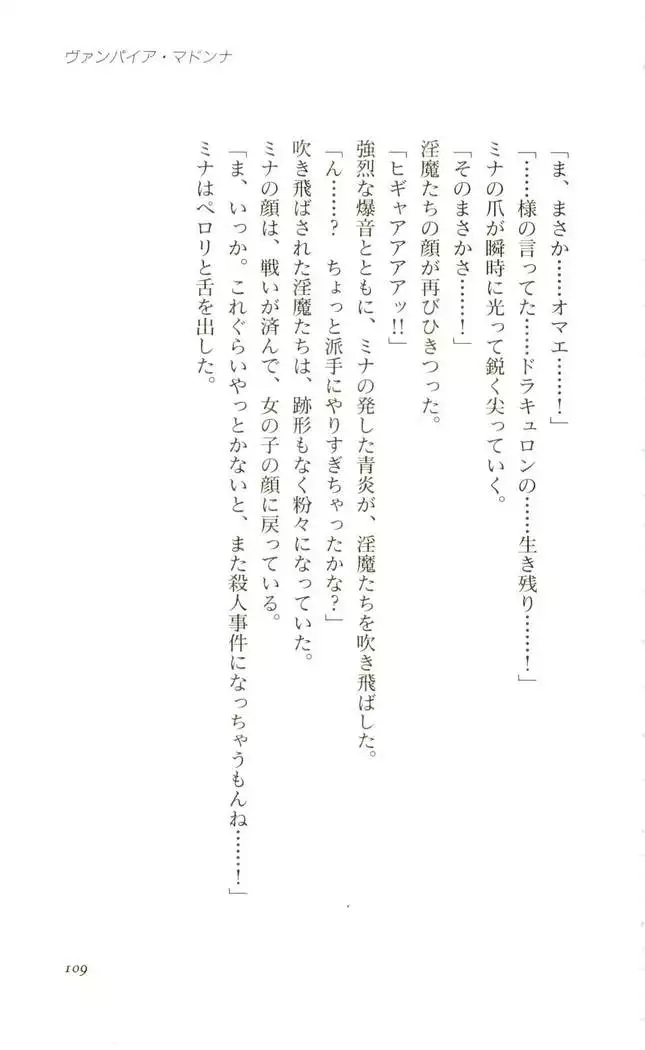 ヴァンパイア・マドンナ
「ま、まさか……オマエ……！」
「……様の言ってた……ドラキュロンの……生き残り……！」
ミナの爪が瞬時に光って鋭く尖っていく。
「そのまさかさ……！」
淫魔たちの顔が再びひきつった。
「ヒギャアアアアッ!!」
強烈な爆音とともに、ミナの発した青炎が、淫魔たちを吹き飛ばした。
「ん……？　ちょっと派手にやりすぎちゃったかな？」
吹き飛ばされた淫魔たちは、跡形もなく粉々になっていた。
ミナの顔は、戦いが済んで、女の子の顔に戻っている。
「ま、いっか。これぐらいやっとかないと、また殺人事件になっちゃうもんね……！」
ミナはペロリと舌を出した。
109